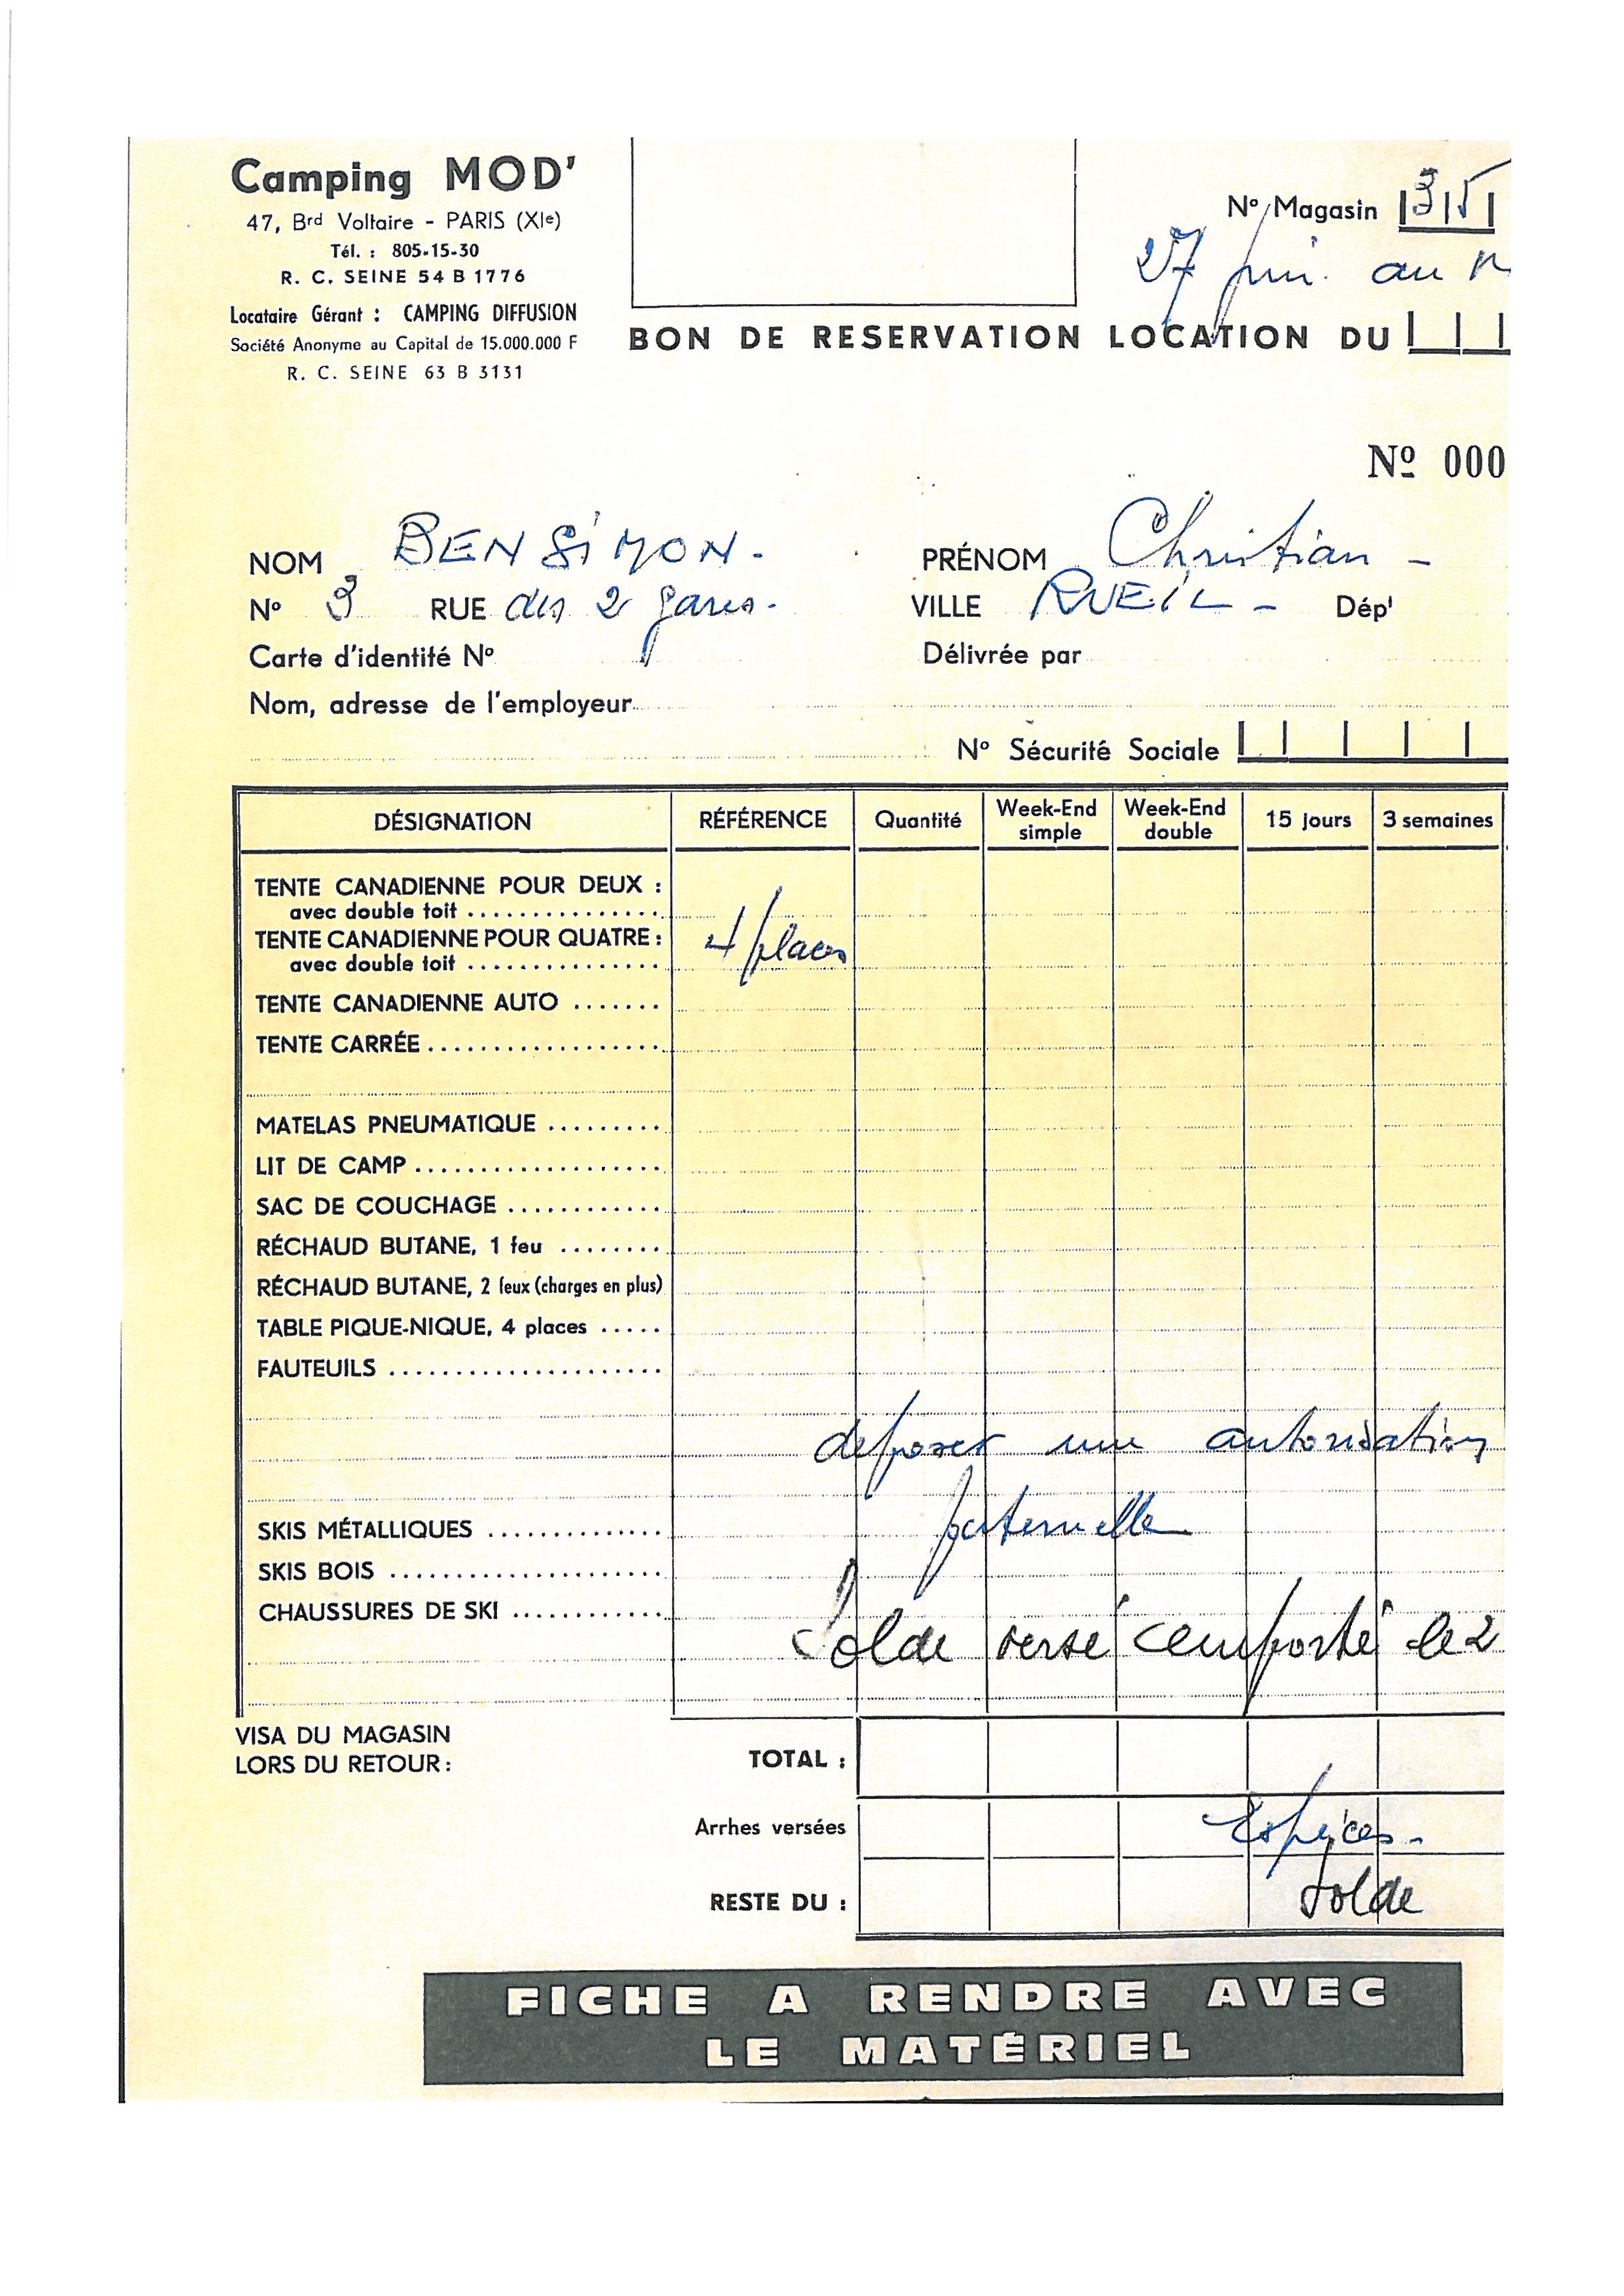 Camping MOD'
47, Brd Voltaire - PARIS (XIe)
Tél. : 805-15-30
R. C. SEINE 54 B 1776
Locataire Gérant : CAMPING DIFFUSION
Société Anonyme au Capital de 15.000.000 F
R. C. SEINE 63 B 3131
No Magasin 35
27 juin. au
BON DE RESERVATION LOCATION DU
No 000
NOM BENSIMON - PRÉNOM Christian -
No 3 RUE des 2 gares. VILLE RUEIL - Dépt
Carte d'identité No Délivrée par
Nom, adresse de l'employeur
No Sécurité Sociale
DÉSIGNATION RÉFÉRENCE Quantité Week-End simple Week-End double 15 jours 3 semaines
TENTE CANADIENNE POUR DEUX :
avec double toit ...............
TENTE CANADIENNE POUR QUATRE : 4 places
avec double toit ...............
TENTE CANADIENNE AUTO .......
TENTE CARRÉE ..................
MATELAS PNEUMATIQUE .........
LIT DE CAMP ...................
SAC DE COUCHAGE ............
RÉCHAUD BUTANE, 1 feu ........
RÉCHAUD BUTANE, 2 feux (charges en plus)
TABLE PIQUE-NIQUE, 4 places .....
FAUTEUILS .....................
deposer une autorisation
paternelle
SKIS MÉTALLIQUES ..............
SKIS BOIS .....................
CHAUSSURES DE SKI ............
Solde versé emporté le 2
VISA DU MAGASIN
LORS DU RETOUR :
TOTAL :
Arrhes versées Espèces -
RESTE DU : Solde
FICHE A RENDRE AVEC
LE MATÉRIEL